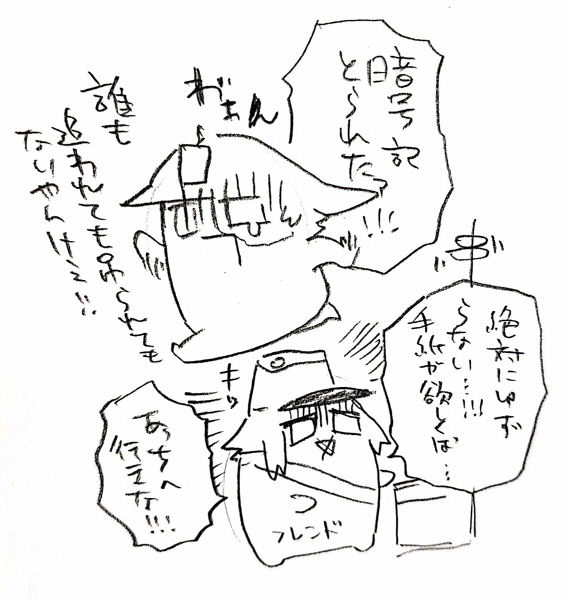 暗号記
とられたっ
!!!
ねぇん
誰も
追われても吊られても
なりやんけェ!!
絶対にゆず
らない…!!!
手紙が欲しくば…
キッ
あっちへ
行えな!!!
フレンド